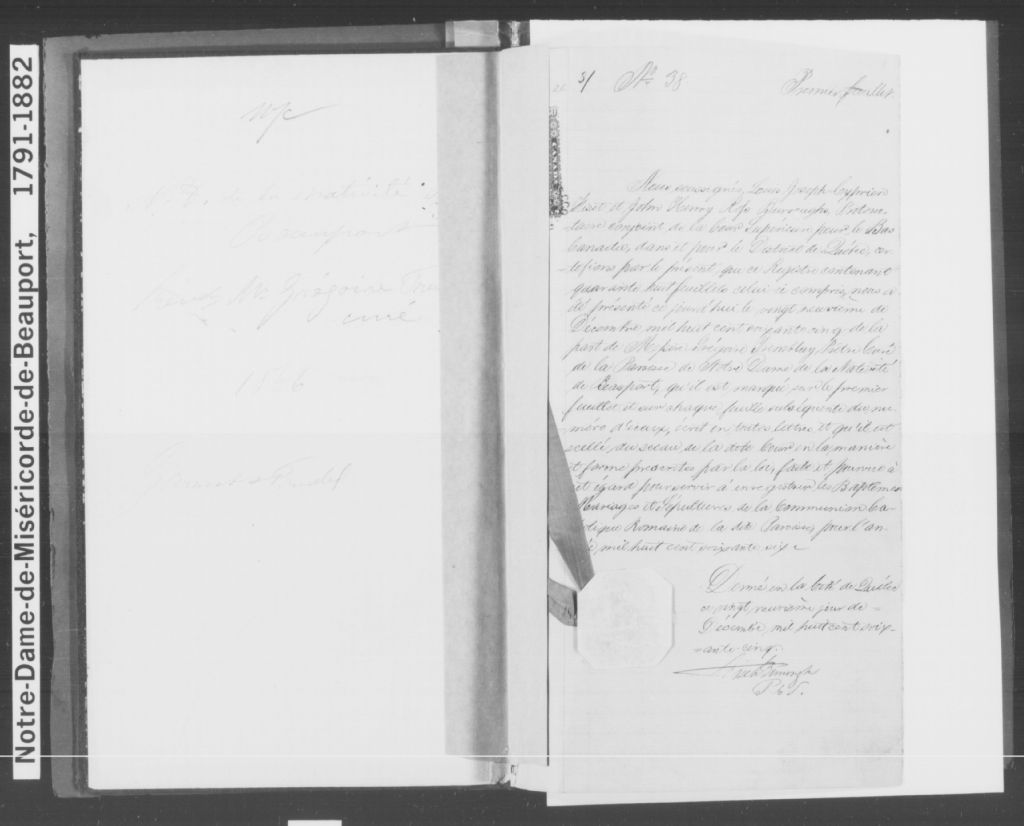 Notre-Dame-de-Miséricorde-de-Beauport, 1791-1882
N. D. de la nativité
Beauport
Révd Mr Grégoire
curé
1866
No 38
Premier feuillet.
Nous soussignés, Louis Joseph Cyprien
Fiset et John Henry Ross Burroughs, Protono-
taire conjoint de la Cour Supérieure pour le Bas
Canada, dans et pour le District de Québec, cer-
tifions par le présent, que ce Registre contenant
quarante huit feuillets celui ci compris, nous a
été présenté ce jourd'hui le vingt neuvième de
Décembre, mil huit cent soixante cinq de la
part de Mssire Grégoire Tremblay, Prêtre Curé
de la Paroisse de Notre Dame de la Nativité
de Beauport, qu'il est marqué sur le premier
feuillet et sur chaque feuille subséquente du nu-
méro d'iceux, écrit en toutes lettres, et qu'il est
scellé du sceau de la dite Cour en la manière
et forme prescrites par la loi, faite et pourvue à
cet égard pour servir à enregistrer les Baptêmes
Mariages et Sépultures de la Communion Ca-
tolique Romaine de la dite Paroisse pour l'an-
née, mil huit cent soixante six
Donné en la Cité de Québec
ce vingt neuvième jour de
Décembre, mil huit cent soix-
ante-cinq.
Fiset & Burroughs
P. C. S.